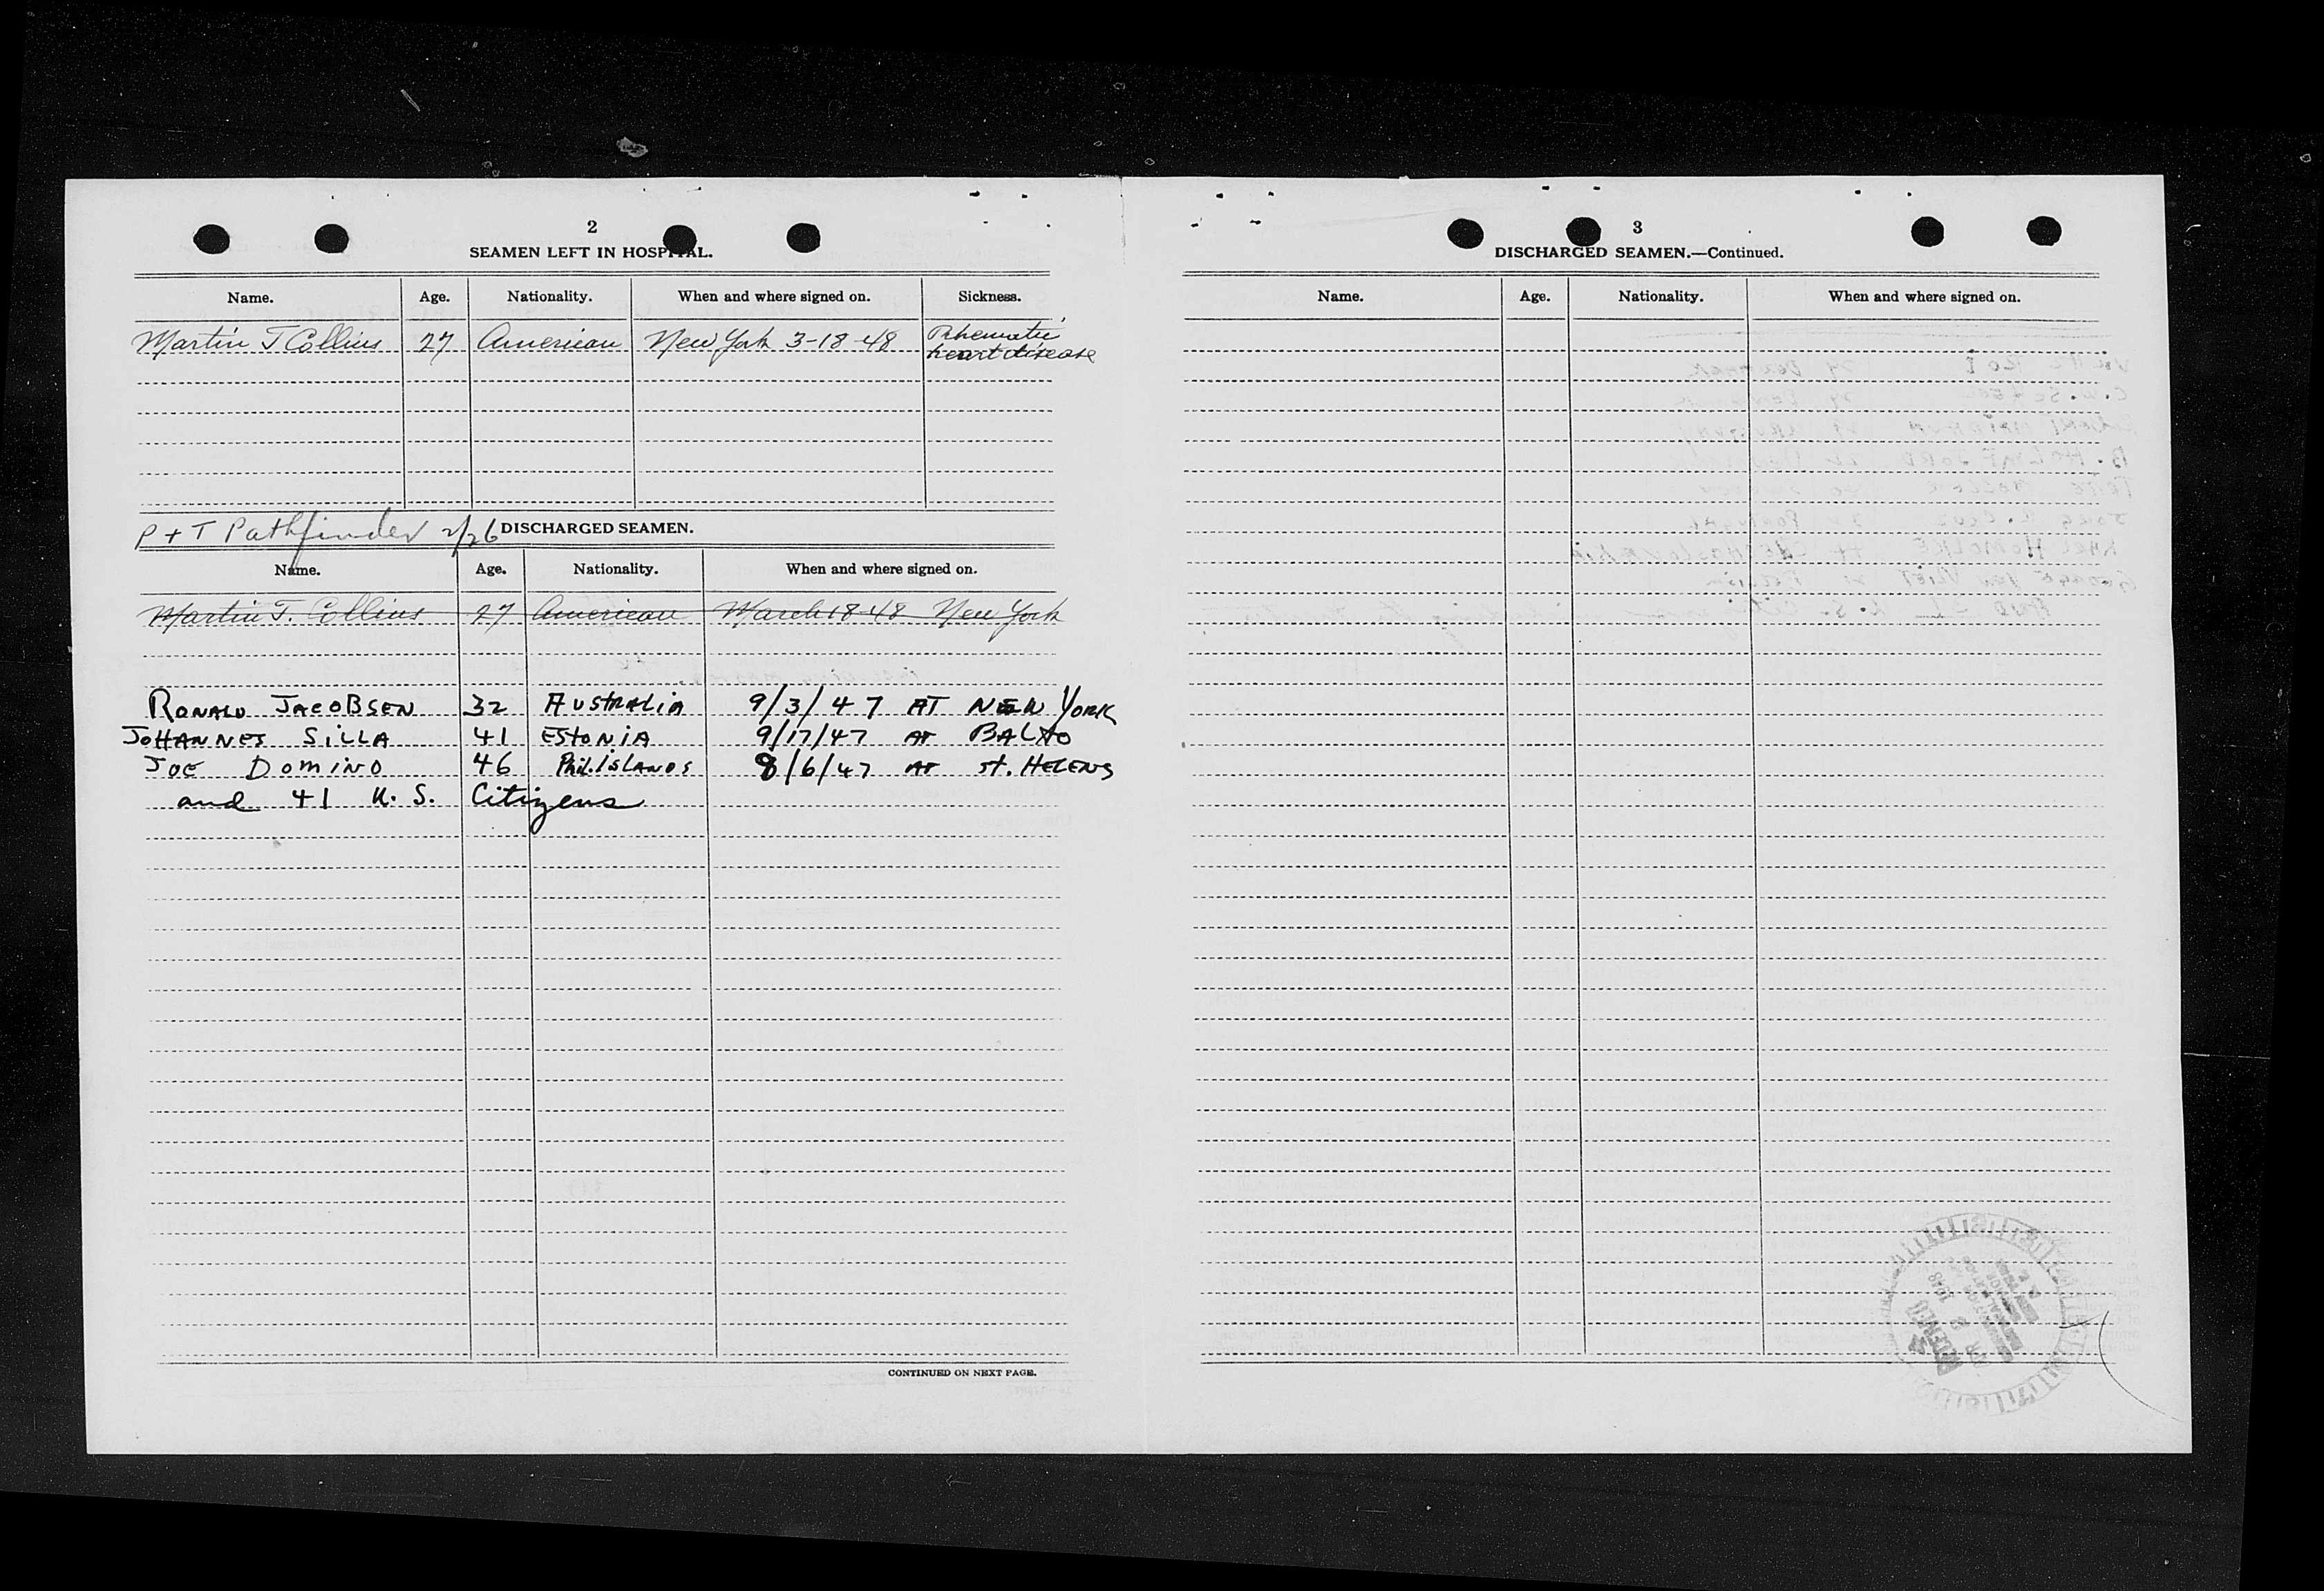 2
SEAMEN LEFT IN HOSPITAL.
Name. Age. Nationality. When and where signed on. Sickness.
Martin T Collins 27 American New York 3-18-48 Rhematic
heart disease
P + T Pathfinder 2/26 DISCHARGED SEAMEN.
Name. Age. Nationality. When and where signed on.
Martin T. Collins 27 American March 18-48 New York
RONALD JACOBSEN 32 AUSTRALIA 9/3/47 AT NEW YORK
JOHANNES SILLA 41 ESTONIA 9/17/47 AT BALTO
JOE DOMINO 46 Phil. ISLANDS 8/6/47 AT ST. HELENS
and 41 U.S. Citizens
CONTINUED ON NEXT PAGE.
3
DISCHARGED SEAMEN.—Continued.
Name. Age. Nationality. When and where signed on.